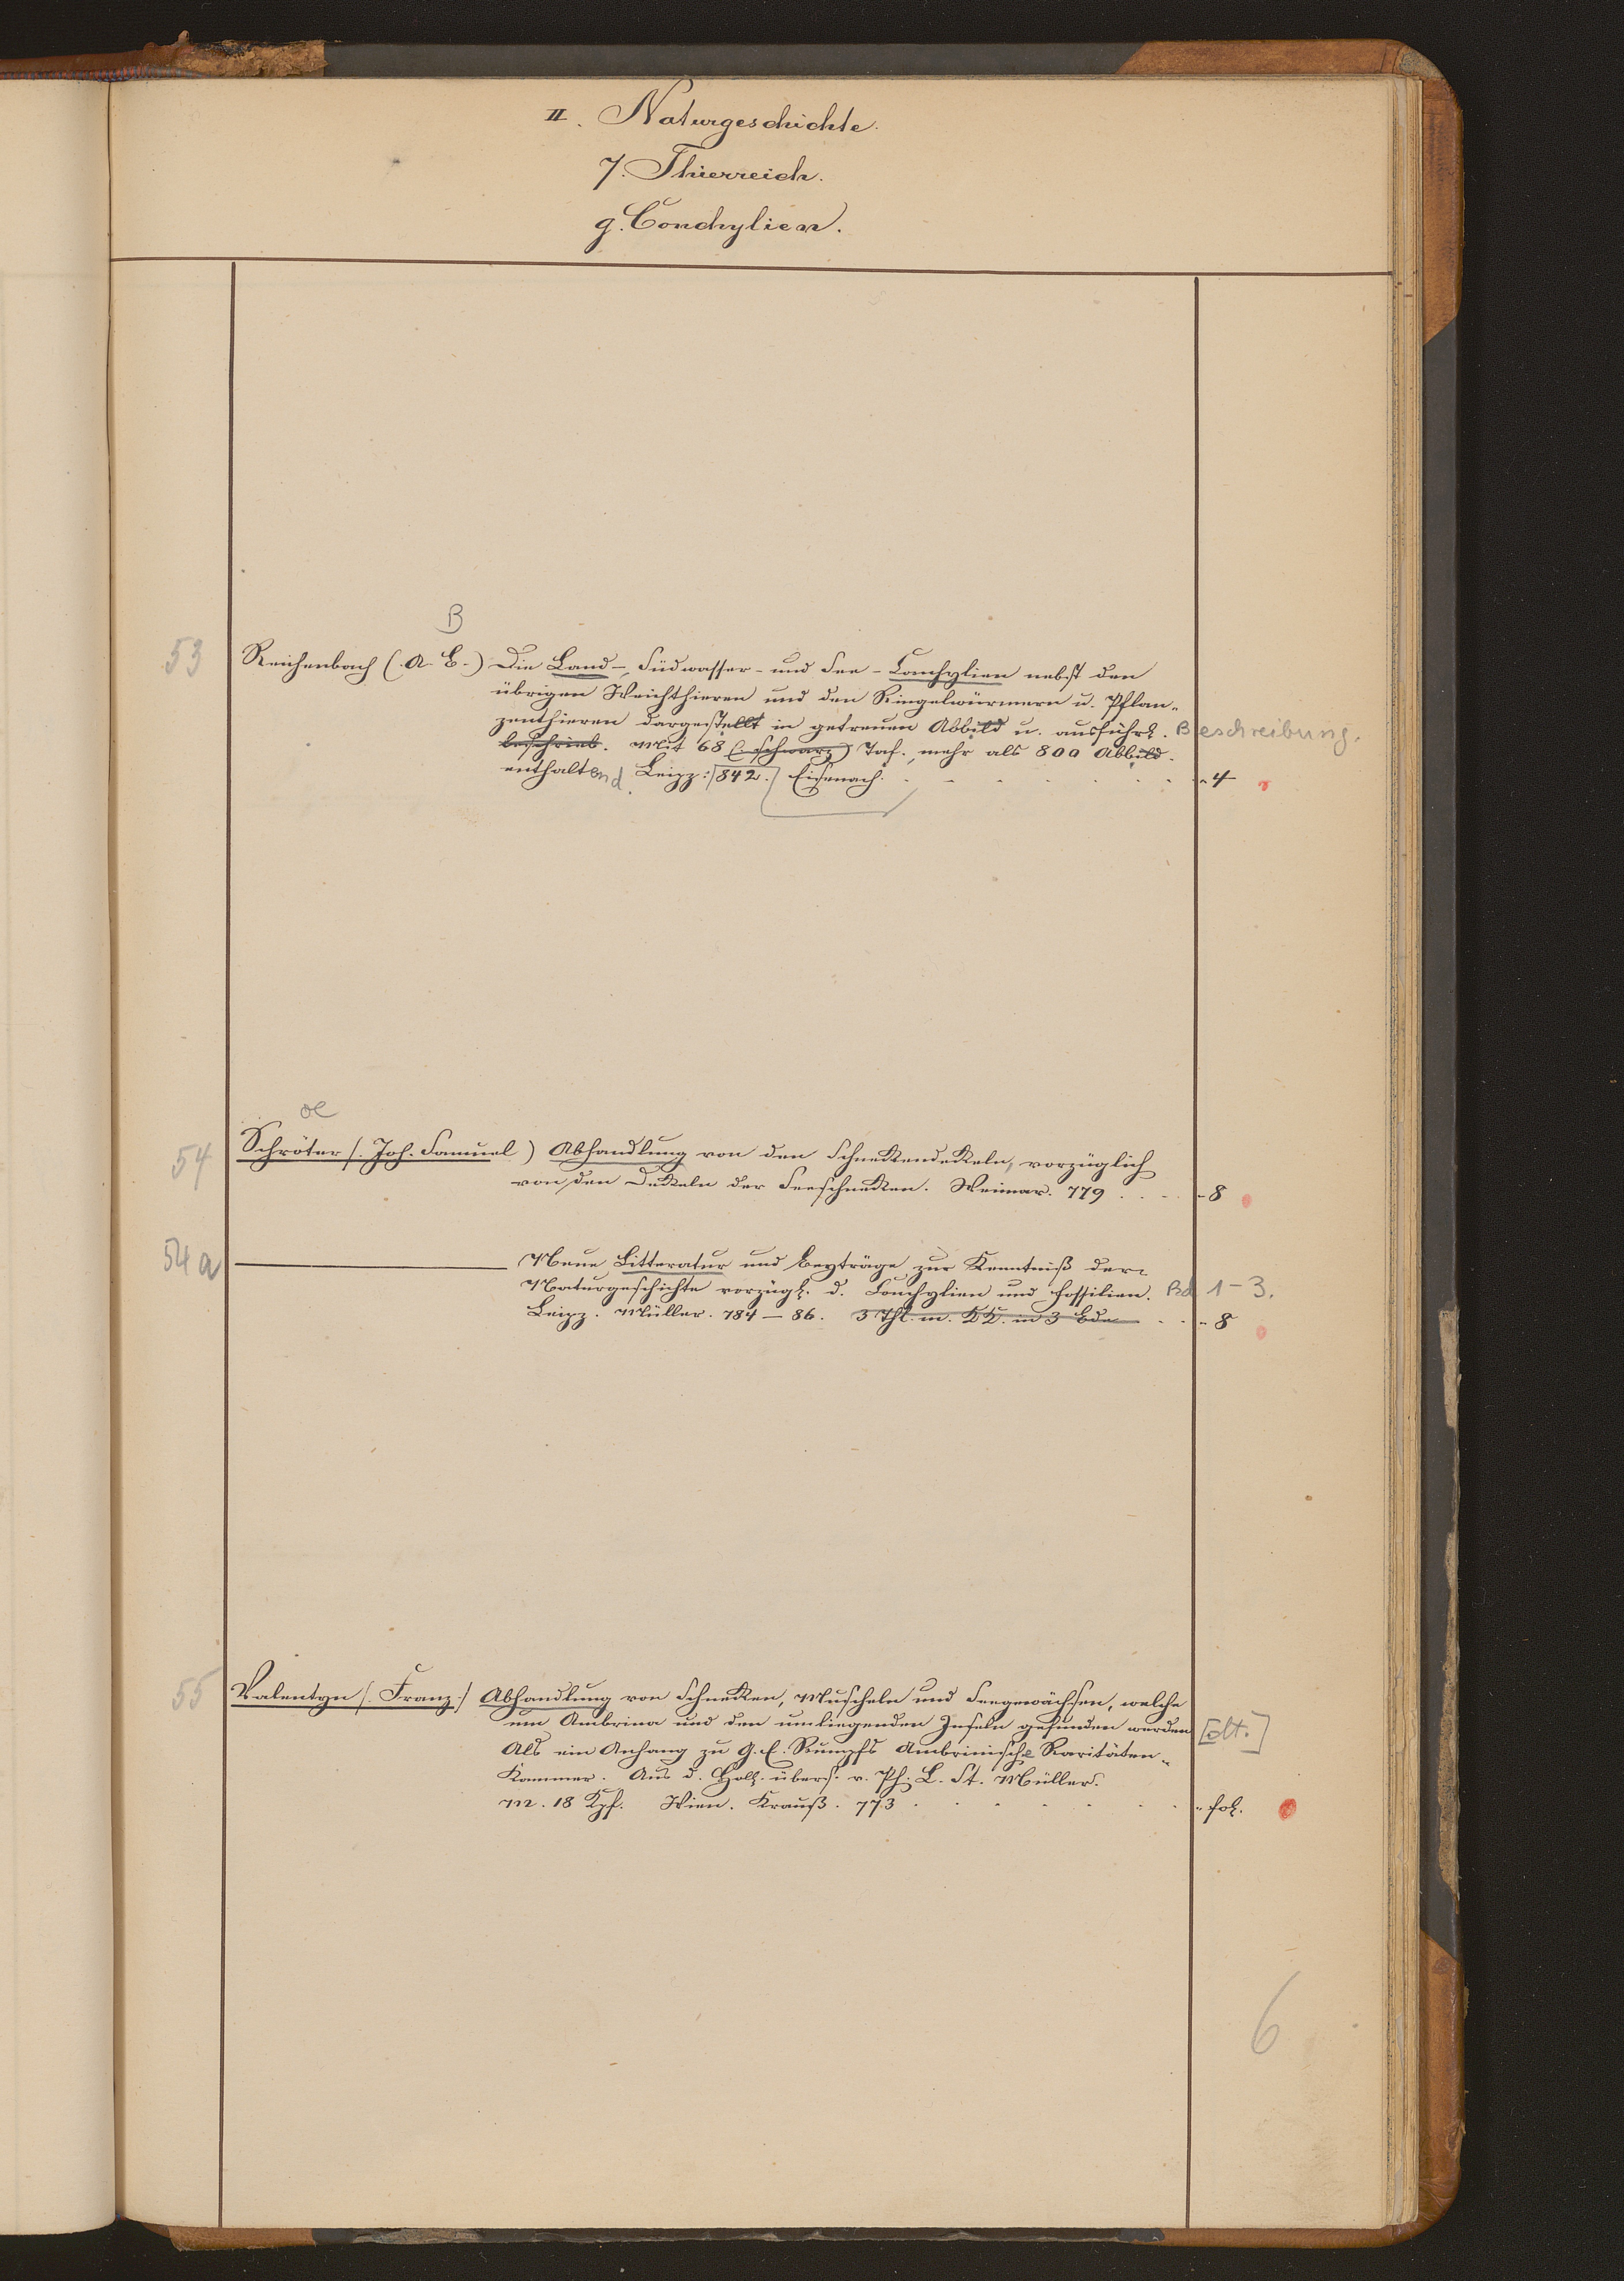 II. Naturgeschichte.
7. Thierreich.
g. Conchylien.
B
53 Reichenbach (A. B.) Die Land-, Südwasser- und See-Conchylien nebst den
übrigen Weichthieren und den Ringelwürmern u. Pflan-
zenthieren dargestellt in getreuen Abbild u. ausführl. Beschreibung.
beschrieb. Mit 68 (schwarz) Taf., mehr als 800 Abbild.
enthaltend. Leipz: 842. Eisenach. 4
oe
54 Schröter (Joh. Samuel) Abhandlung von den Schneckendeckeln, vorzüglich
von den Deckeln der Seeschnecken. Weimar. 779 8
54a Neue Litteratur und Beyträge zur Kenntniß der
Naturgeschichte vorzügl. d. Conchylien und Fossilien. Bd 1-3.
Leipz. Müller. 784—86. 3 Thl. m. KK. in 3 Bde 8
55 Valentyn (Franz) Abhandlung von Schnecken, Muscheln und Seegewächsen, welche
um Ambrina und den umliegenden Inseln gefunden werden [dt.]
Als ein Anhang zu G. E. Rumpfs Ambrinische Raritäten-
Kammer. Aus d. Holl. übers. v. Ph. L. St. Müller.
M. 18 Kpf. Wien. Krauß. 773 fol.
6